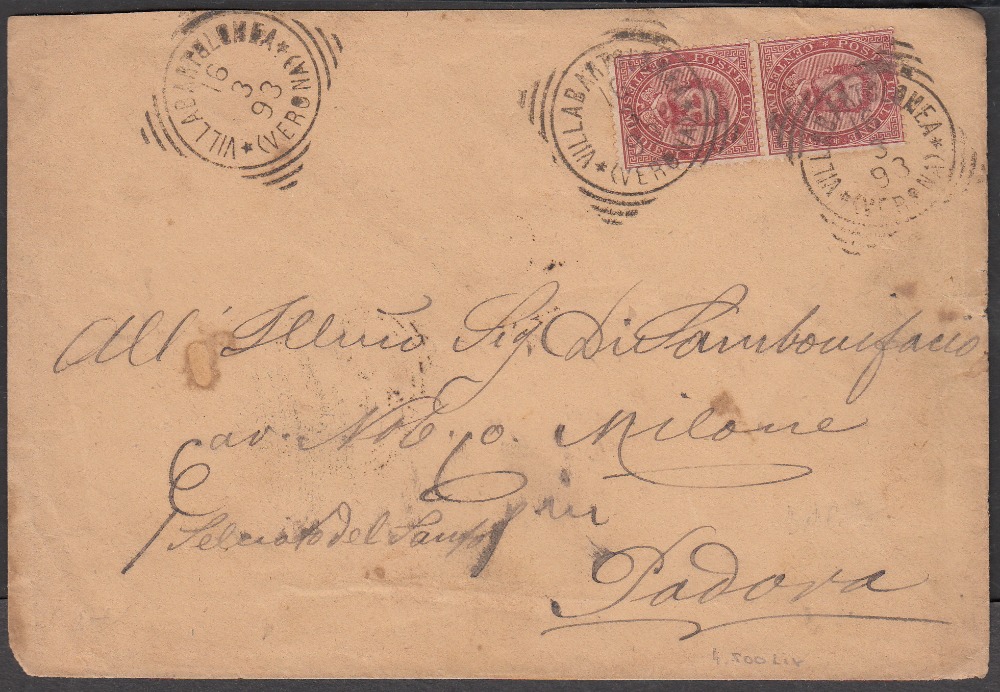 VILLABARTOLOMEA
(VERONA)
16
3
93
VILLABARTOLOMEA
(VERONA)
POSTE ITALIANE
CENTESIMI
POSTE ITALIANE
CENTESIMI
VILLABARTOLOMEA
(VERONA)
93
All' Illmo Sig. Di Sambonifacio
av. Nob. o. Milone
Selciato del Santo
Padova
4.500 Lit